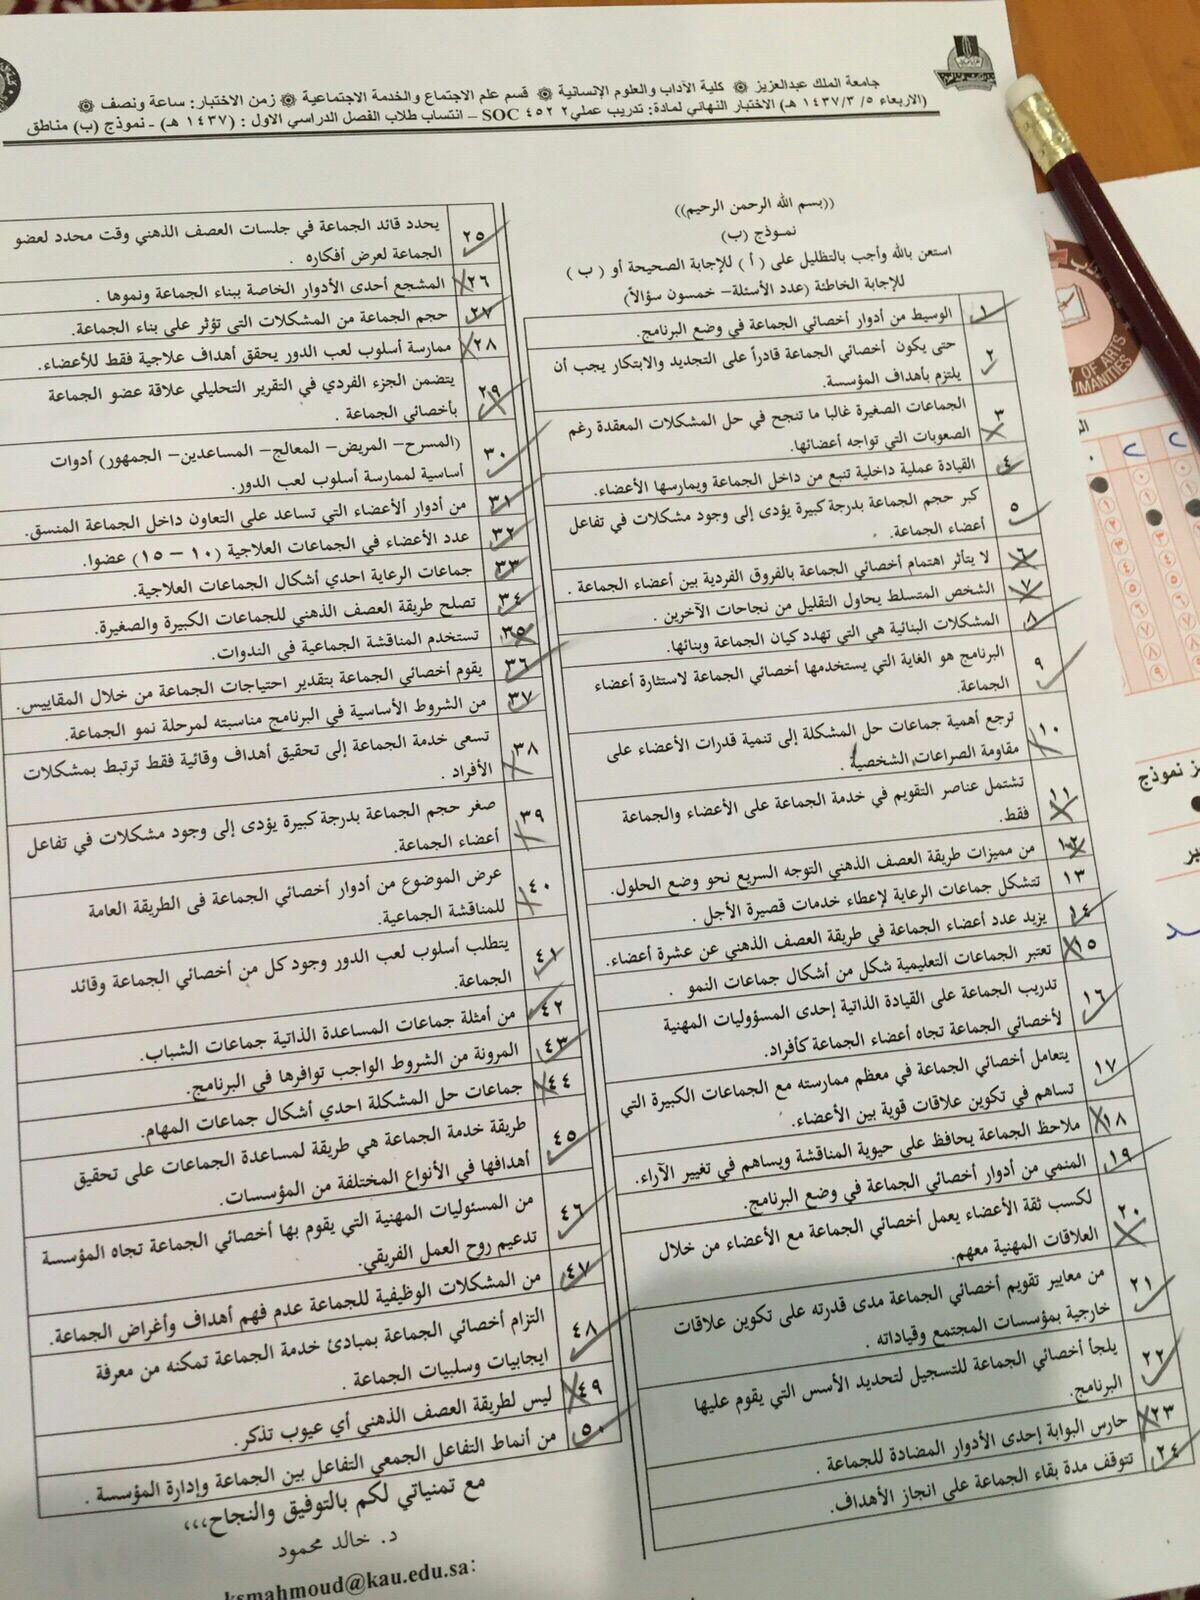 جامعة الملك عبدالعزيز ۞ كلية الآداب والعلوم الإنسانية ۞ قسم علم الاجتماع والخدمة الاجتماعية ۞ زمن الاختبار: ساعة ونصف ۞
(الاربعاء ٥/ ٣/ ١٤٣٧ هـ) الاختبار النهائي لمادة: تدريب عملي٢ SOC ٤٥٢ – انتساب طلاب الفصل الدراسي الاول : (١٤٣٧ هـ) - نموذج (ب) مناطق
((بسم الله الرحمن الرحيم))
نموذج (ب)
استعن بالله وأجب بالتظليل على ( أ ) للإجابة الصحيحة أو ( ب )
للإجابة الخاطئة (عدد الأسئلة– خمسون سؤالاً)
١ الوسيط من أدوار أخصائي الجماعة في وضع البرنامج.
٢ حتى يكون أخصائي الجماعة قادراً على التجديد والابتكار يجب أن
يلتزم بأهداف المؤسسة.
٣ الجماعات الصغيرة غالبا ما تنجح في حل المشكلات المعقدة رغم
الصعوبات التي تواجه أعضائها.
٤ القيادة عملية داخلية تنبع من داخل الجماعة ويمارسها الأعضاء.
٥ كبر حجم الجماعة بدرجة كبيرة يؤدى إلى وجود مشكلات في تفاعل
أعضاء الجماعة.
٦ لا يتأثر اهتمام أخصائي الجماعة بالفروق الفردية بين أعضاء الجماعة .
٧ الشخص المتسلط يحاول التقليل من نجاحات الآخرين .
٨ المشكلات البنائية هي التي تهدد كيان الجماعة وبنائها.
٩ البرنامج هو الغاية التي يستخدمها أخصائي الجماعة لاستثارة أعضاء
الجماعة.
١٠ ترجع أهمية جماعات حل المشكلة إلى تنمية قدرات الأعضاء على
مقاومة الصراعات الشخصية .
١١ تشتمل عناصر التقويم في خدمة الجماعة على الأعضاء والجماعة
فقط.
١٢ من مميزات طريقة العصف الذهني التوجه السريع نحو وضع الحلول.
١٣ تتشكل جماعات الرعاية لإعطاء خدمات قصيرة الأجل .
١٤ يزيد عدد أعضاء الجماعة في طريقة العصف الذهني عن عشرة أعضاء.
١٥ تعتبر الجماعات التعليمية شكل من أشكال جماعات النمو .
١٦ تدريب الجماعة على القيادة الذاتية إحدى المسؤوليات المهنية
لأخصائي الجماعة تجاه أعضاء الجماعة كأفراد.
١٧ يتعامل أخصائي الجماعة في معظم ممارسته مع الجماعات الكبيرة التي
تساهم في تكوين علاقات قوية بين الأعضاء.
١٨ ملاحظ الجماعة يحافظ على حيوية المناقشة ويساهم في تغيير الآراء.
١٩ المنمي من أدوار أخصائي الجماعة في وضع البرنامج.
٢٠ لكسب ثقة الأعضاء يعمل أخصائي الجماعة مع الأعضاء من خلال
العلاقات المهنية معهم.
٢١ من معايير تقويم أخصائي الجماعة مدى قدرته على تكوين علاقات
خارجية بمؤسسات المجتمع وقياداته .
٢٢ يلجأ أخصائي الجماعة للتسجيل لتحديد الأسس التي يقوم عليها
البرنامج.
٢٣ حارس البوابة إحدى الأدوار المضادة للجماعة .
٢٤ تتوقف مدة بقاء الجماعة على انجاز الأهداف.
٢٥ يحدد قائد الجماعة في جلسات العصف الذهني وقت محدد لعضو
الجماعة لعرض أفكاره .
٢٦ المشجع أحدى الأدوار الخاصة ببناء الجماعة ونموها .
٢٧ حجم الجماعة من المشكلات التي تؤثر على بناء الجماعة.
٢٨ ممارسة أسلوب لعب الدور يحقق أهداف علاجية فقط للأعضاء.
٢٩ يتضمن الجزء الفردي في التقرير التحليلي علاقة عضو الجماعة
بأخصائي الجماعة .
٣٠ (المسرح– المريض– المعالج– المساعدين– الجمهور) أدوات
أساسية لممارسة أسلوب لعب الدور.
٣١ من أدوار ألأعضاء التي تساعد على التعاون داخل الجماعة المنسق.
٣٢ عدد الأعضاء في الجماعات العلاجية (١٠ – ١٥) عضوا.
٣٣ جماعات الرعاية احدي أشكال الجماعات العلاجية.
٣٤ تصلح طريقة العصف الذهني للجماعات الكبيرة والصغيرة.
٣٥ تستخدم المناقشة الجماعية في الندوات.
٣٦ يقوم أخصائي الجماعة بتقدير احتياجات الجماعة من خلال المقاييس.
٣٧ من الشروط الأساسية في البرنامج مناسبته لمرحلة نمو الجماعة.
٣٨ تسعى خدمة الجماعة إلى تحقيق أهداف وقائية فقط ترتبط بمشكلات
الأفراد .
٣٩ صغر حجم الجماعة بدرجة كبيرة يؤدى إلى وجود مشكلات في تفاعل
أعضاء الجماعة.
٤٠ عرض الموضوع من أدوار أخصائي الجماعة فى الطريقة العامة
للمناقشة الجماعية.
٤١ يتطلب أسلوب لعب الدور وجود كل من أخصائي الجماعة وقائد
الجماعة.
٤٢ من أمثلة جماعات المساعدة الذاتية جماعات الشباب.
٤٣ المرونة من الشروط الواجب توافرها في البرنامج.
٤٤ جماعات حل المشكلة احدي أشكال جماعات المهام.
٤٥ طريقة خدمة الجماعة هي طريقة لمساعدة الجماعات على تحقيق
أهدافها في الأنواع المختلفة من المؤسسات.
٤٦ من المسئوليات المهنية التي يقوم بها أخصائي الجماعة تجاه المؤسسة
تدعيم روح العمل الفريقي.
٤٧ من المشكلات الوظيفية للجماعة عدم فهم أهداف وأغراض الجماعة.
٤٨ التزام أخصائي الجماعة بمبادئ خدمة الجماعة تمكنه من معرفة
ايجابيات وسلبيات الجماعة .
٤٩ ليس لطريقة العصف الذهني أي عيوب تذكر.
٥٠ من أنماط التفاعل الجمعي التفاعل بين الجماعة وإدارة المؤسسة .
مع تمنياتي لكم بالتوفيق والنجاح،،،
د. خالد محمود
ksmahmoud@kau.edu.sa:
OF ARTS
HUMANITIES
نموذج